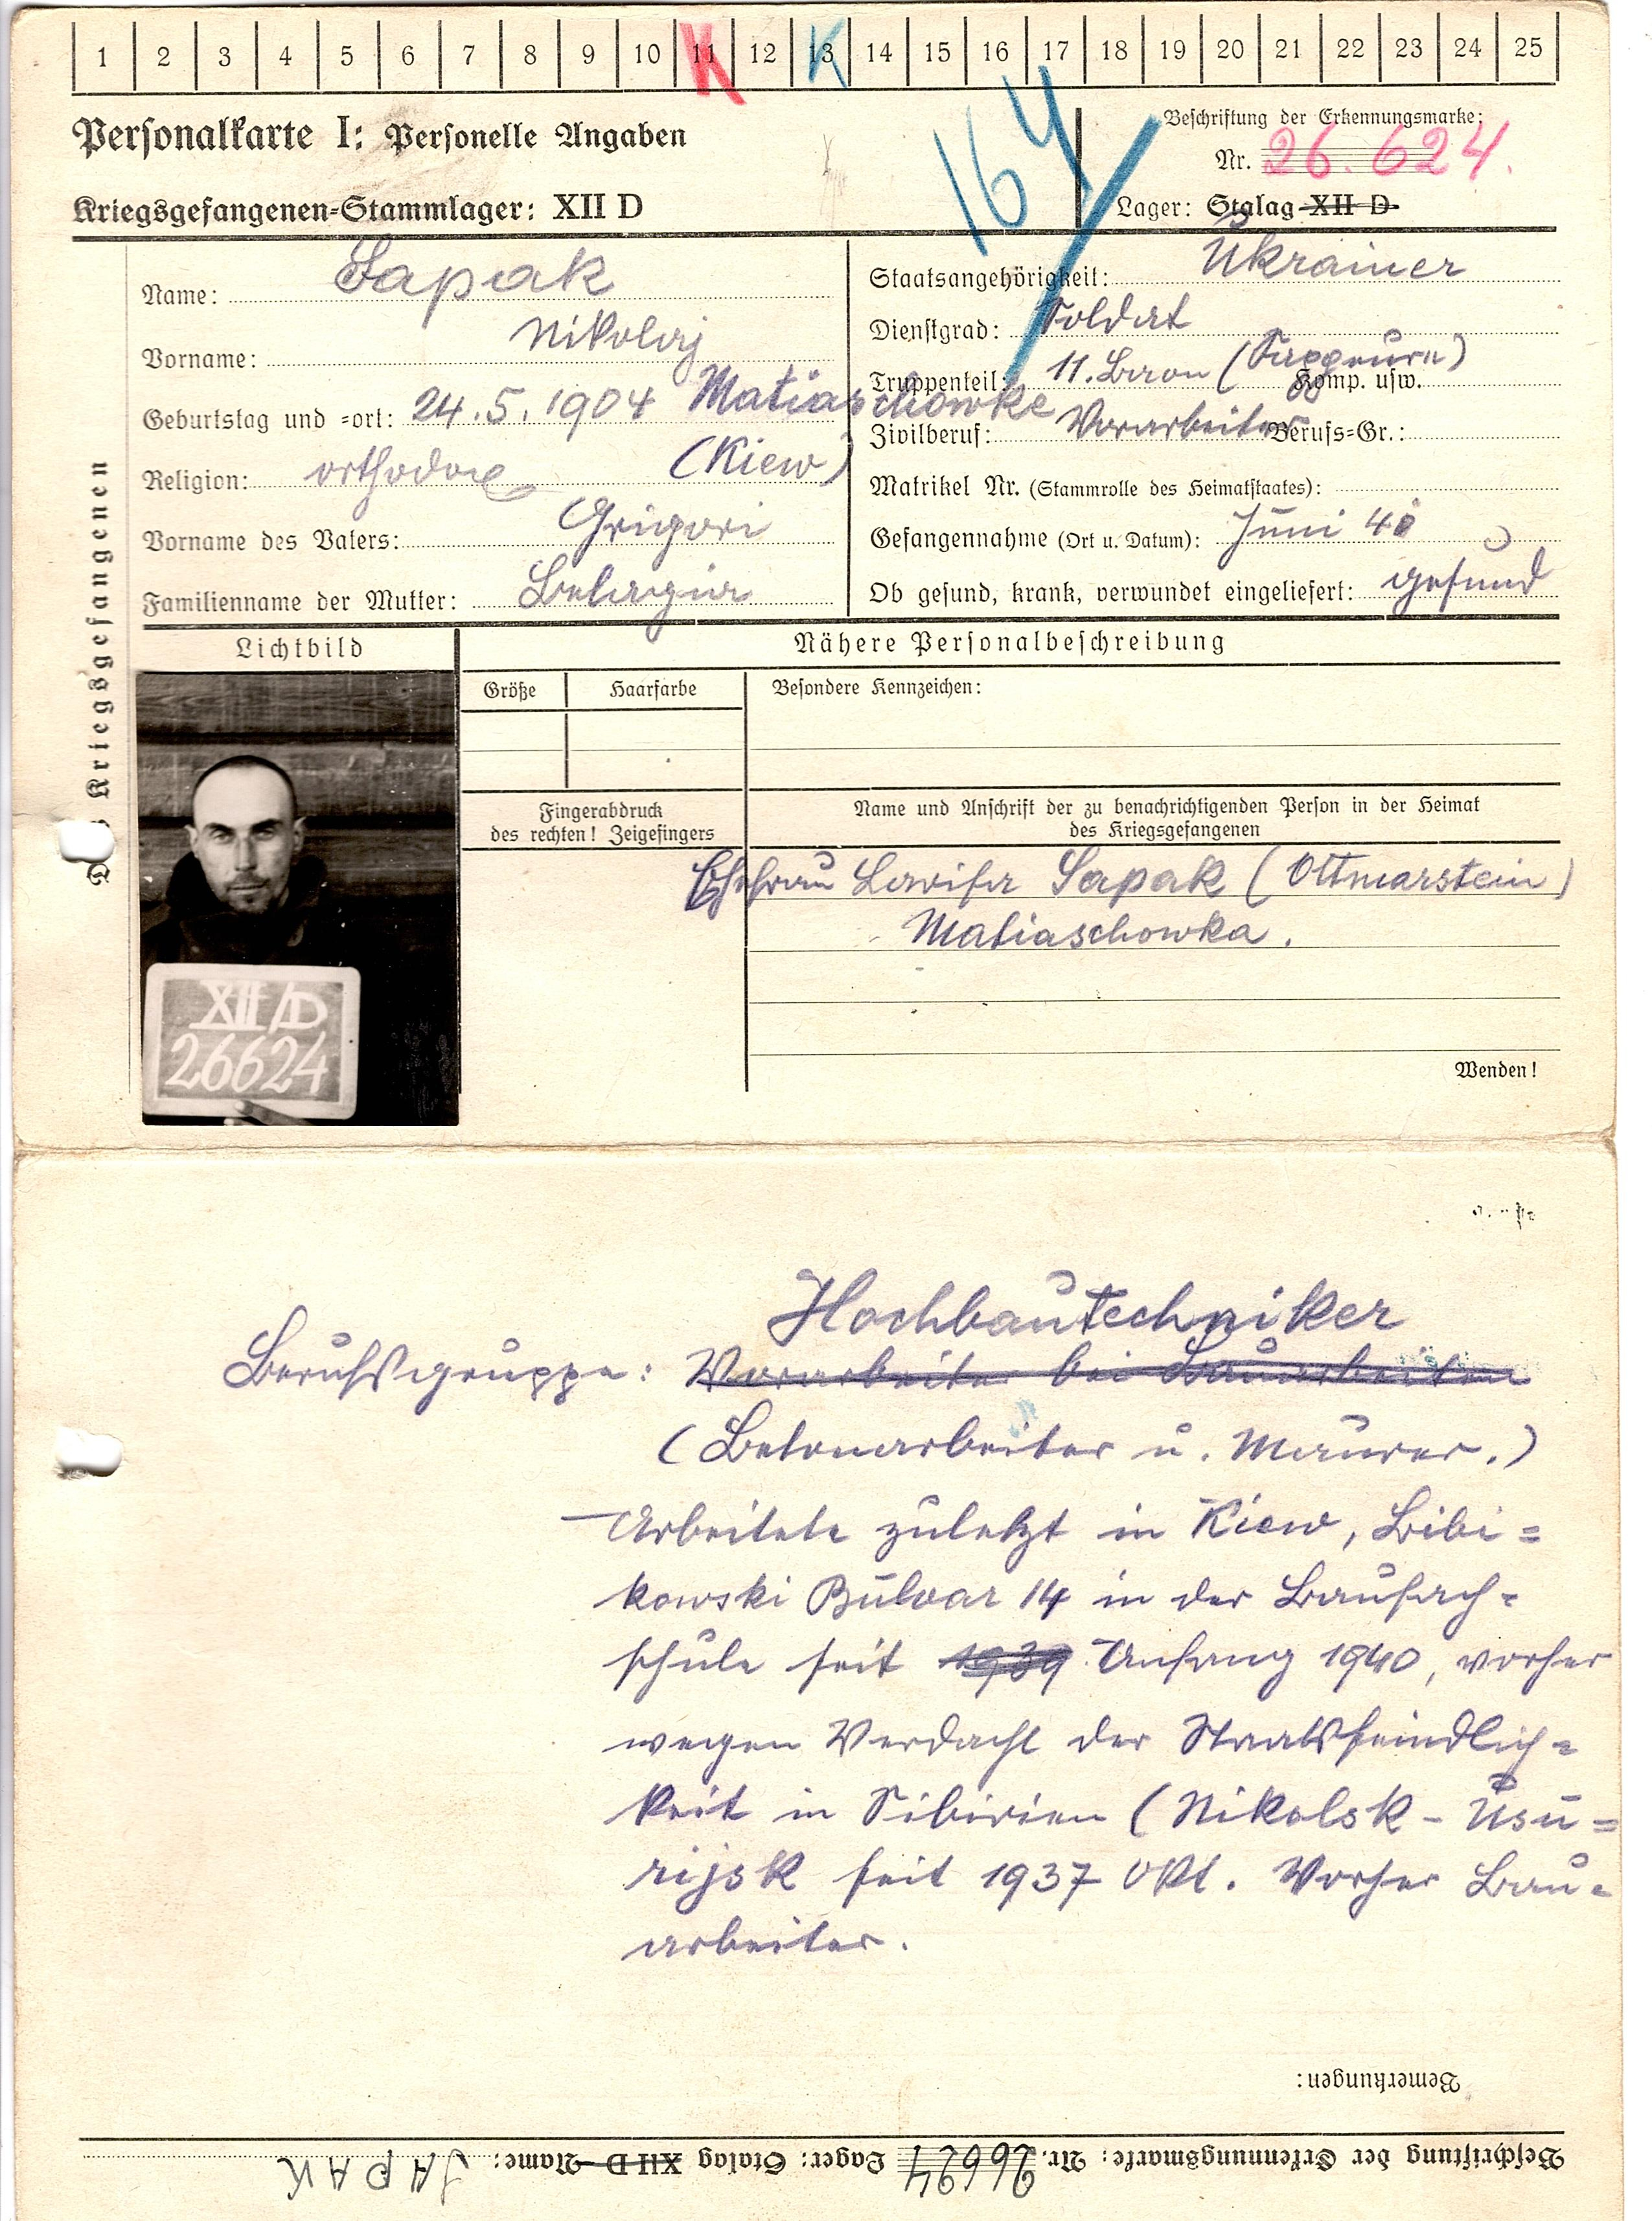 1 2 3 4 5 6 7 8 9 10 11 12 13 14 15 16 17 18 19 20 21 22 23 24 25
K K
Personalkarte I: Personelle Angaben
164
Beschriftung der Erkennungsmarke:
Nr. 26.624.
Kriegsgefangenen-Stammlager: XII D
Lager: Stalag XII D
Des Kriegsgefangenen
Name: Sapak
Vorname: Nikolaj
Geburtstag und =ort: 24.5.1904 Matiaschowke
(Kiew)
Religion: orthodox
Vorname des Vaters: Grigori
Familienname der Mutter:
Staatsangehörigkeit: Ukrainer
Dienstgrad: Soldat
Truppenteil: 11. Komp. usw.
Zivilberuf: Vorarbeiter Berufs=Gr.:
Matrikel Nr. (Stammrolle des Heimatstaates):
Gefangennahme (Ort u. Datum): Juni 40
Ob gesund, krank, verwundet eingeliefert: gesund
Lichtbild
XII/D
26624
Nähere Personalbeschreibung
Größe
Haarfarbe
Besondere Kennzeichen:
Fingerabdruck
des rechten! Zeigefingers
Name und Anschrift der zu benachrichtigenden Person in der Heimat
des Kriegsgefangenen
Ehefrau Sapak (Ottmarstein)
Matiaschowka.
Wenden!
Hochbautechniker
Berufsgruppe: Vorarbeiter bei Bauarbeiten
(Betonarbeiter u. Maurer.)
Arbeitete zuletzt in Kiew, Bibi=
kowski Bulvar 14 in der Baufach=
schule seit 1939 Anfang 1940, vorher
wegen Verdacht der Staatsfeindlich=
keit in Sibirien (Nikolsk - Usu=
rijsk seit 1937 Okt. Vorher Bau=
arbeiter.
Bemerkungen:
Beschriftung der Erkennungsmarke: Nr. 26624 Lager: Stalag XII D Name: SAPAK